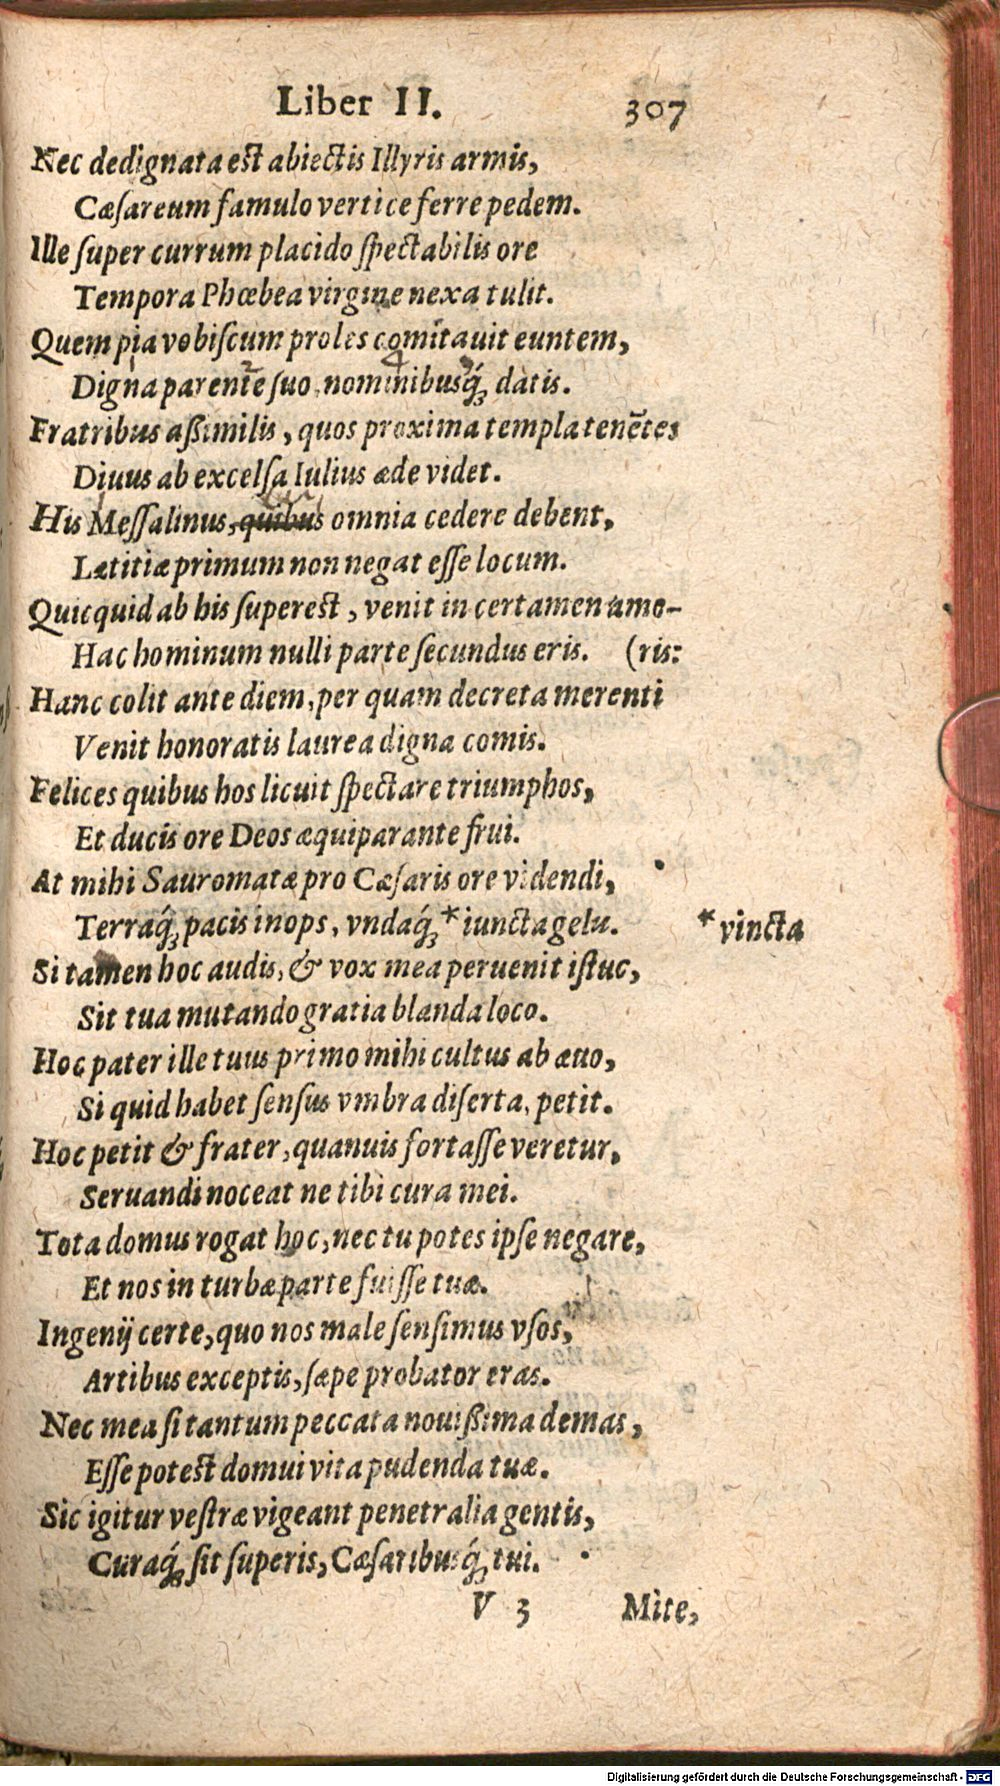 Liber II. 307
Nec dedignata est abiectis Illyris armis,
Cæſareum famulo vertice ferre pedem.
Ille ſuper currum placido ſpectabilis ore
Tempora Phœbea virgine nexa tulit.
Quem pia vobiſcum proles comitauit euntem,
Digna parente ſuo, nominibusq́; datis.
Fratribus aßimilis, quos proxima templa tenētes
Diuus ab excelſa Iulius æde videt.
His Meſſalinus, quibus omnia cedere debent,
Lætitiæ primum non negat eſſe locum.
Quicquid ab his ſuperest, venit in certamen amo-
Hac hominum nulli parte ſecundus eris. (ris:
Hanc colit ante diem, per quam decreta merenti
Venit honoratis laurea digna comis.
Felices quibus hos licuit ſpectare triumphos,
Et ducis ore Deos æquiparante frui.
At mihi Sauromatæ pro Cæſaris ore videndi,
Terraq́; pacis inops, vndaq́; * iuncta gelu. * vincta
Si tamen hoc audis, & vox mea peruenit iſtuc,
Sit tua mutando gratia blanda loco.
Hoc pater ille tuus primo mihi cultus ab æuo,
Si quid habet ſenſus vmbra diſerta, petit.
Hoc petit & frater, quanuis fortaſſe veretur,
Seruandi noceat ne tibi cura mei.
Tota domus rogat hoc, nec tu potes ipſe negare,
Et nos in turbæ parte fuiſſe tuæ.
Ingenij certe, quo nos male ſenſimus vſos,
Artibus exceptis, ſæpe probator eras.
Nec mea ſi tantum peccata nouißima demas,
Eſſe potest domui vita pudenda tuæ.
Sic igitur veſtræ vigeant penetralia gentis,
Curaq́; ſit ſuperis, Cæſaribusq́; tui.
V 3 Mite,
Digitalisierung gefördert durch die Deutsche Forschungsgemeinschaft - DFG